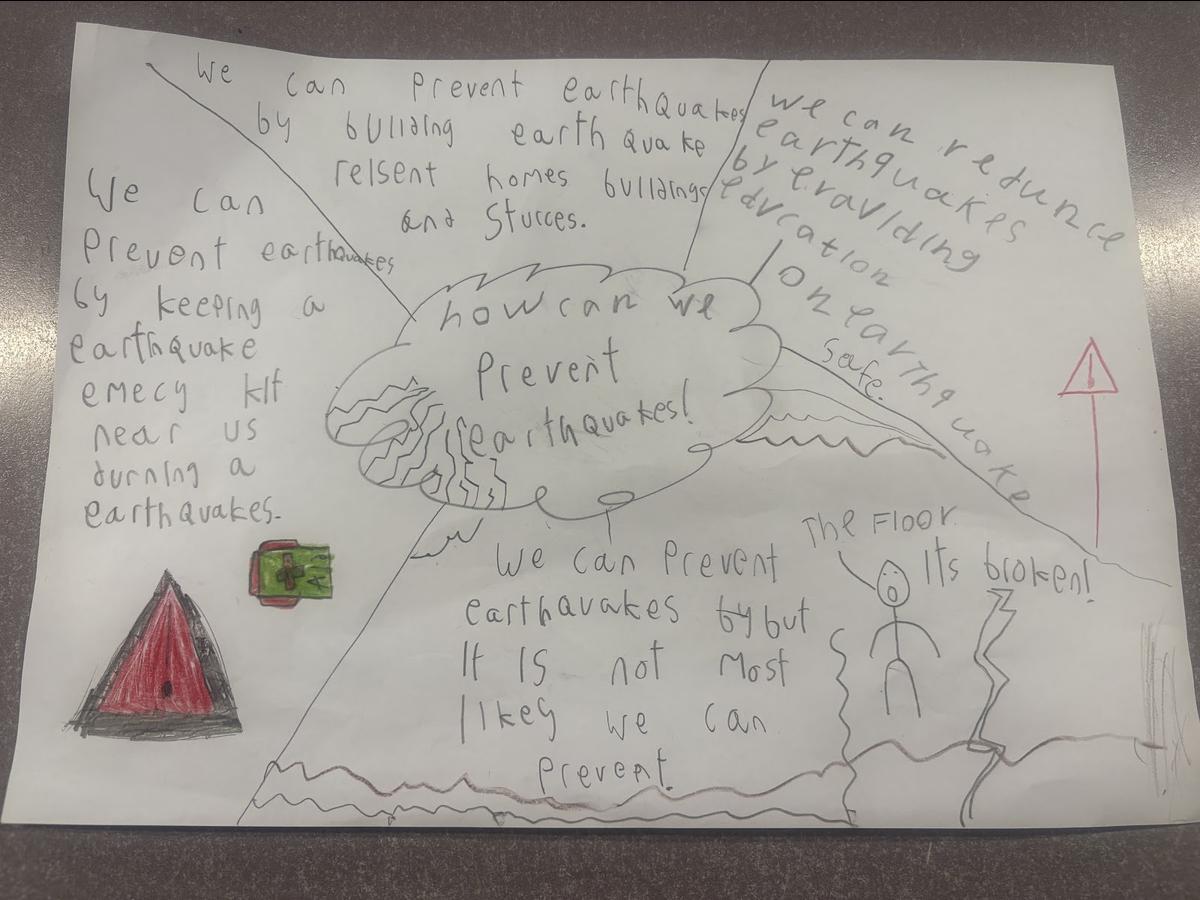 We can Prevent earthquakes
by building earth quake
relsent homes buildings
and Sturces.
we can redunce
earthquakes
by eraviding
education
on earthquake
safe.
We can
Prevent earthquakes
by keeping a
earthquake
emecy kit
near us
durning a
earthquakes.
how can we
Prevent
earthquakes!
We can Prevent
earthquakes by but
It Is not Most
likey we can
Prevent.
The Floor
Its broken!